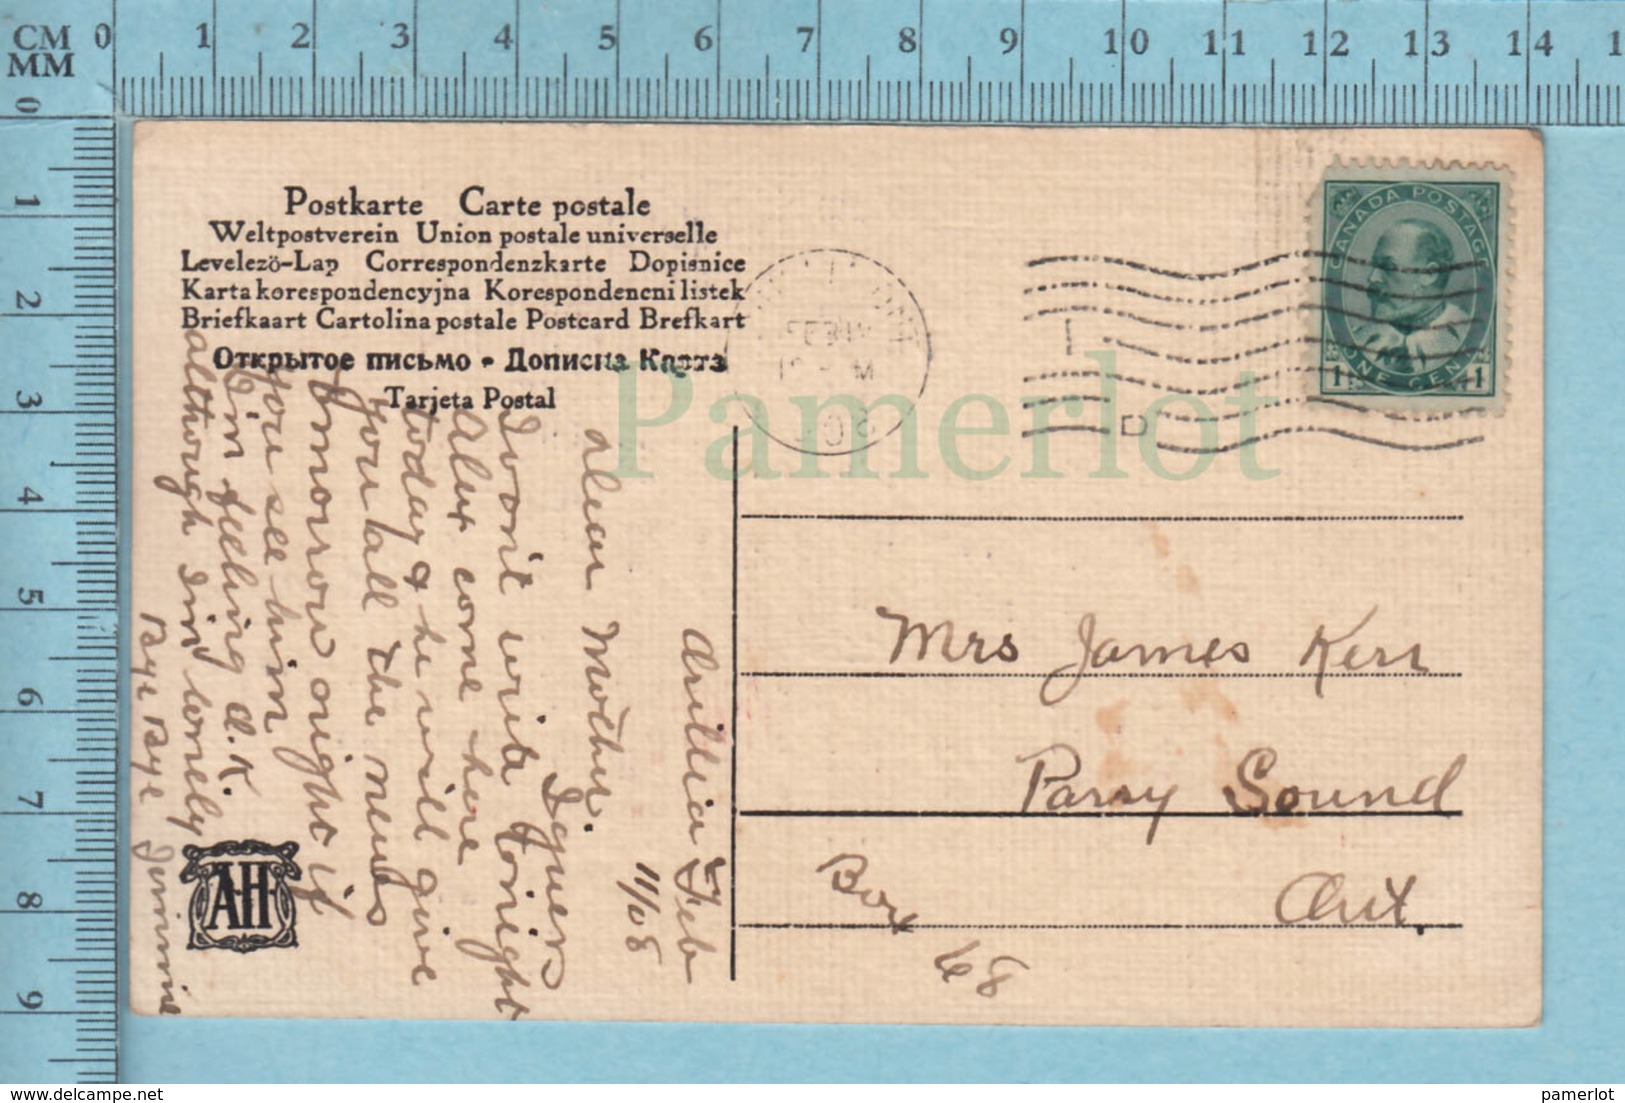 CM 0 1 2 3 4 5 6 7 8 9 10 11 12 13 14 1
MM
0 1 2 3 4 5 6 7 8 9
Postkarte Carte postale
Weltpostverein Union postale universelle
Levelezö-Lap Correspondenzkarte Dopisnice
Karta korespondencyjna Korespondencni listek
Briefkaart Cartolina postale Postcard Brefkart
Открытое письмо - Дописна Карта
Tarjeta Postal
CANADA POSTAGE
1 ONE CENT 1
FEB 11
M
Orillia Feb
11/08
Dear Mother.
I guess
I won't write tonight
Alex come here
today & he will give
you all the news
tomorrow night if
you see him
I'm feeling O.K.
although I'm lonely
Bye Bye Jimmie
Mrs James Kerr
Parry Sound
Ont.
Box 68
A.H
Pamerlot
pamerlot
www.delcampe.net